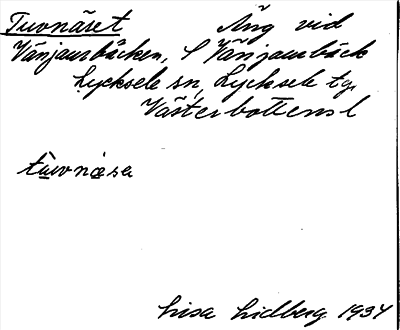 Tuvnäset Äng vid
Vänjaurbäcken, S Vänjaurbäck
Lycksele sn, Lycksele tg.
Västerbottens l
tùvnǝsa
Lisa Lidberg 1934